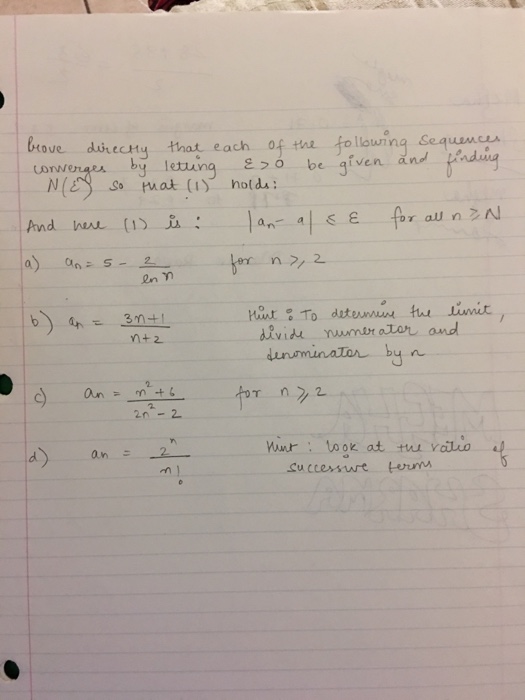 Prove directly that each of the following sequences
converges by letting ε > 0 be given and finding
N(ε) so that (1) holds:
And here (1) is : |an - a| ≤ ε for all n ≥ N
a) an = 5 - 2/ln n for n ≥ 2
b) an = 3n+1/n+2 Hint : To determine the limit,
divide numerator and
denominator by n
c) an = n²+6/2n²-2 for n ≥ 2
d) an = 2ⁿ/n! Hint : look at the ratio of
successive terms